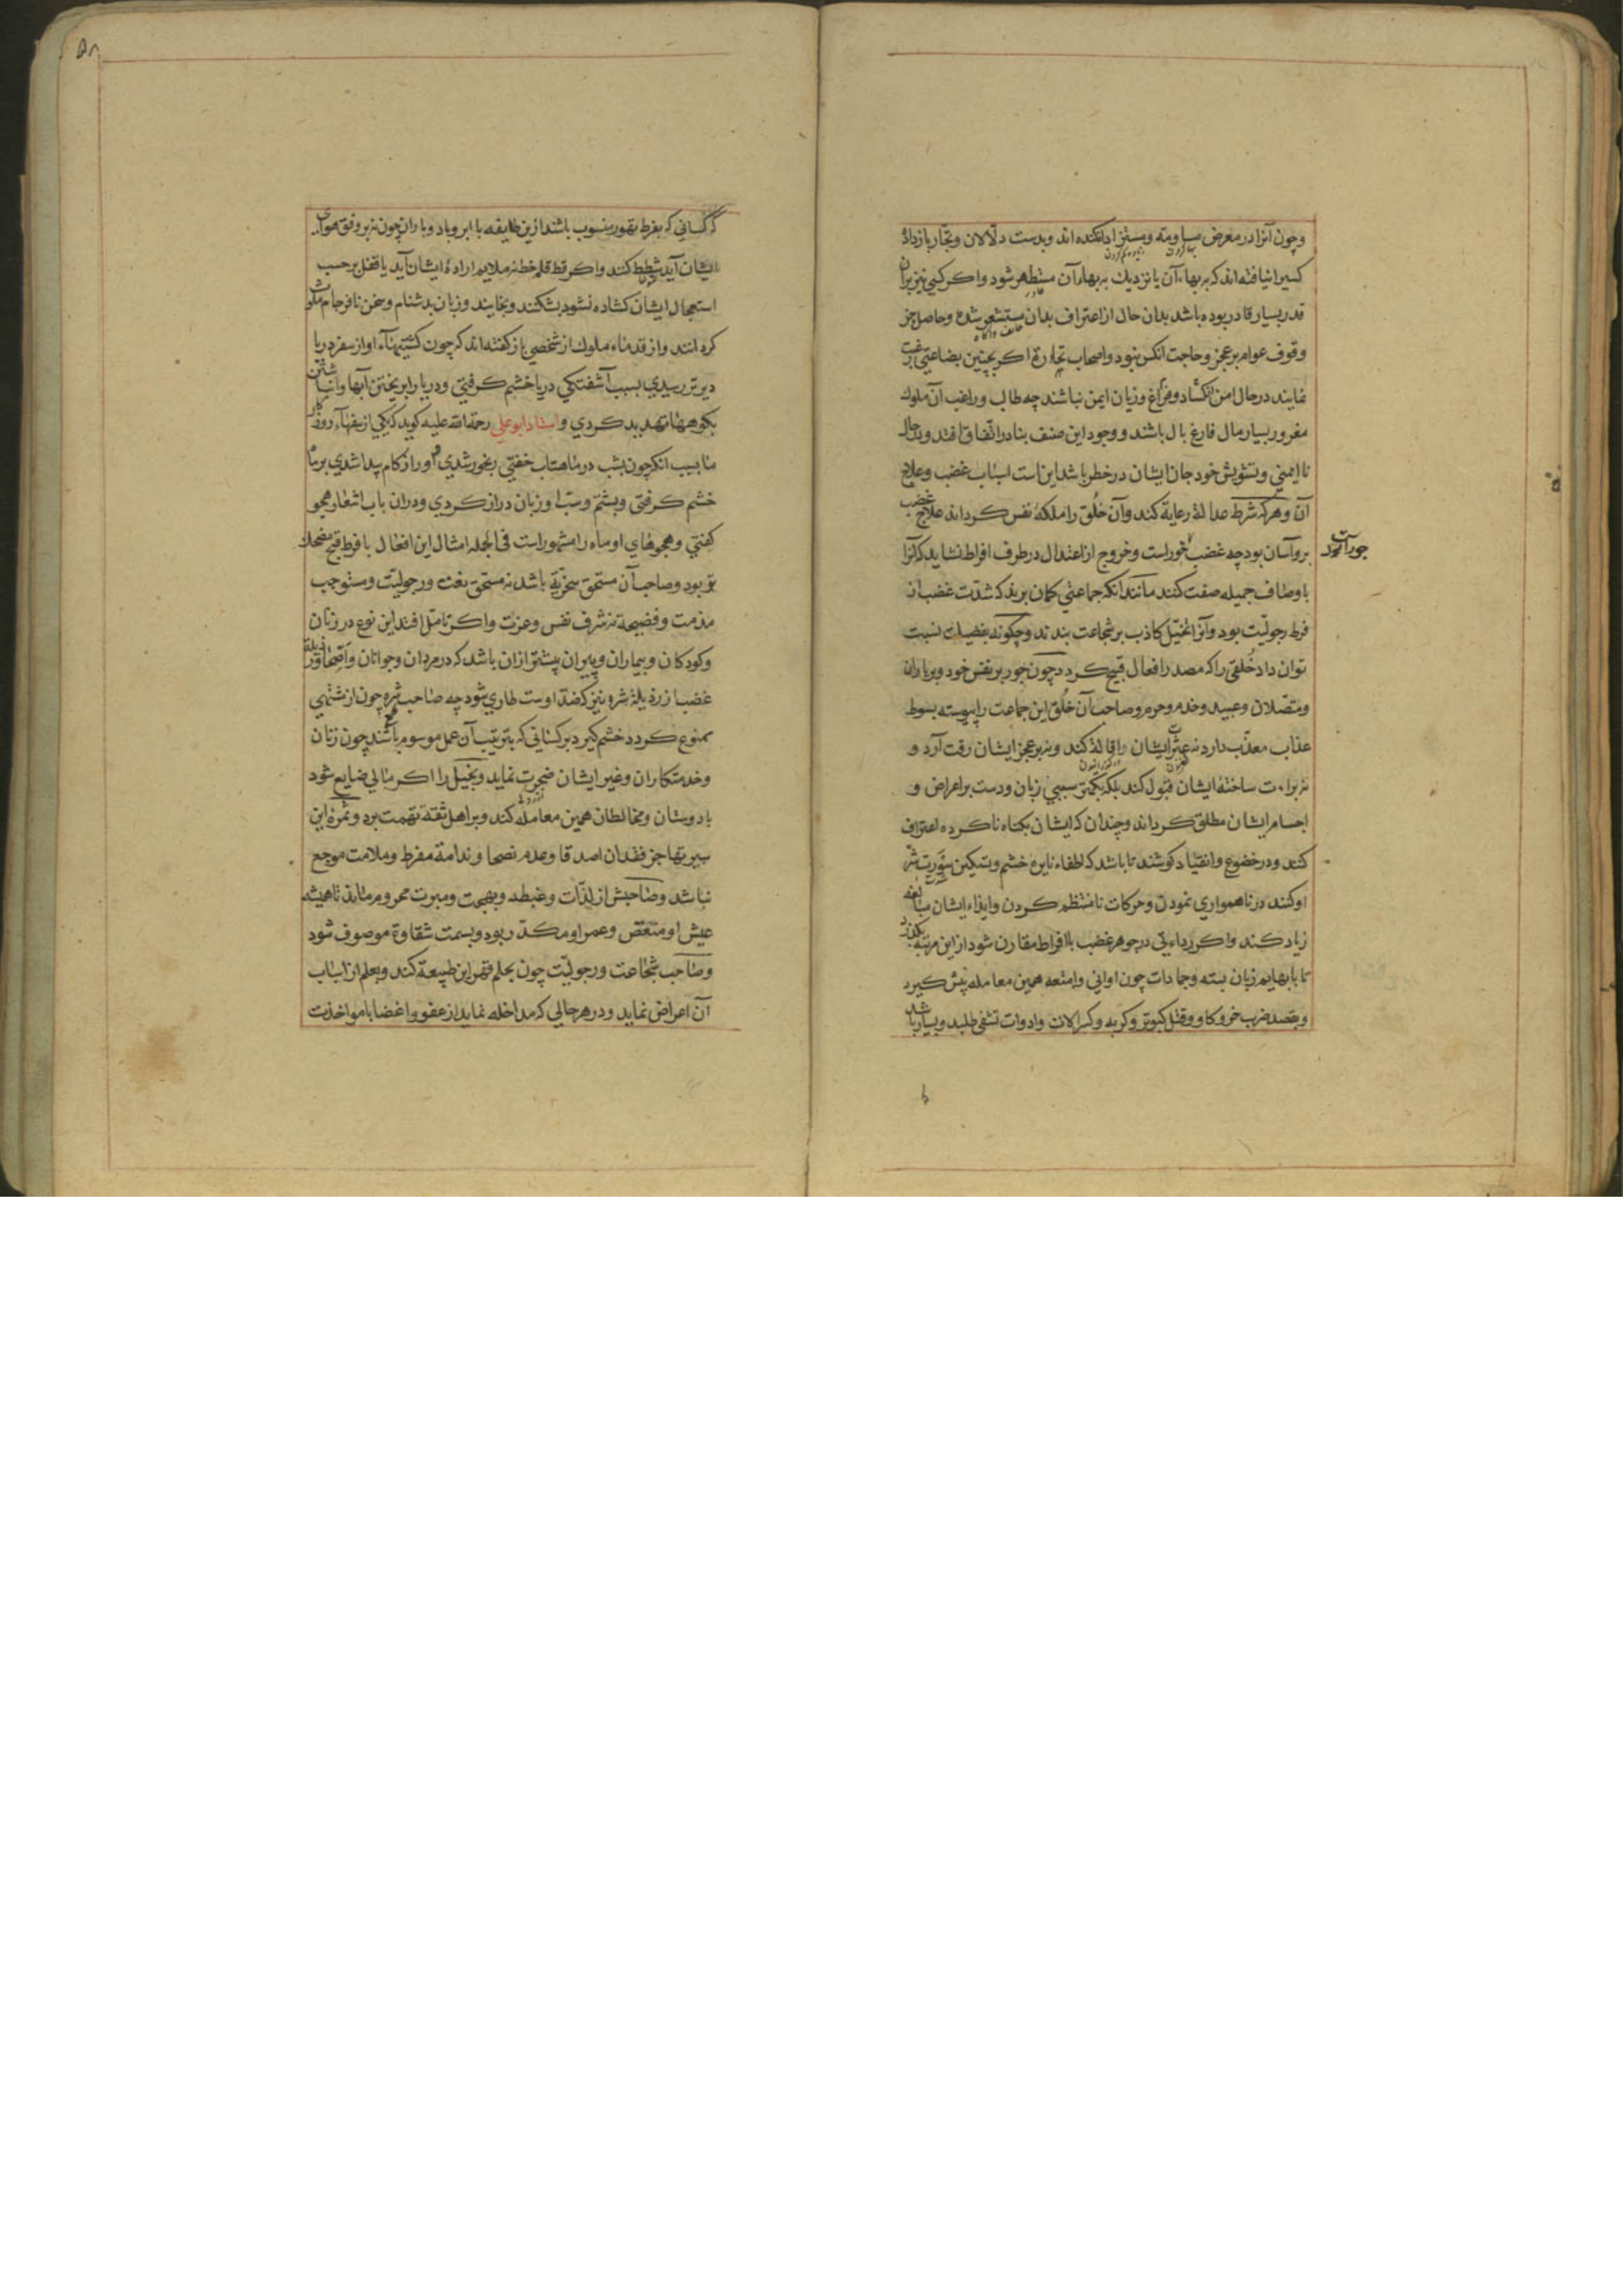 وچون آنرا در معرض مساومه ومستزاد افکنده اند وبدست دلّالان وتجّار بازداده
کسیرا نیافته اند که بر بهاء آن یا نزدیک به بهاء آن مستظهر شود واکر کسی نیز بران
قدر بسیار قادر بوده باشد بدان حال از اعتراف بدان مستشعر شده وحاصل جز
وقوف عوام بر عجز وحاجت انکس نبود واصحاب تجارة اکر بچنین بضاعتی رغبت
نمایند در حال امن انکشاد وفراغ وزیان ایمن نباشند چه طالب وراغب آن ملوک
مغرور بسیار مال فارغ بال باشند ووجود این صنف بنادر اتّفاق افتد ودر حال
نا ایمنی وتشویش خود جان ایشان در خطر باشد این است اسباب غضب وعلاج
آن وهرکه شرط عدالة رعایة کند وآن خُلق را ملکهٔ نفس کرداند علاج غضب
برو آسان بود چه غضب جورست وخروج از اعتدال در طرف افراط نشاید که آنرا
جورآنرا
باوصاف جمیله صفت کنند مانند انکه جماعتی کمان برند که شدّت غضب از
فرط رجولیّت بود وآنرا تخیّل کاذب بر شجاعت بندند وچکونه بفضیلت نسبت
توان داد خُلقی را که مصدر افعال قبیح کردد چون جور بر نفس خود وبر یاران
ومتصّلان وعبید وخدم وحرم وصاحب آن خُلق این جماعت را پیوسته بسوط
عذاب معذّب دارد نه عثرات ایشان را اقالة کند ونه بر عجز ایشان رقت آرد و
نه براءت ساحتهٔ ایشان قبول کند بلکه بکمتر سببی زبان ودست بر اعراض و
اجسام ایشان مطلق کرداند وچندان که ایشان بکناه ناکرده اعتراف
کنند ودر خضوع وانقیاد کوشند تا باشد که اطفاء نایرهٔ خشم وتسکین سَورت شر
او کنند در ناهمواری نمودن وحرکات نا منتظم کردن وایذاء ایشان مبالغه
زیاد کند واکر رداءتی در جوهر غضب با افراط مقارن شود از این مرتبه بکذرد
تا با بهایم زبان بسته وجمادات چون اوانی وامتعه همین معامله پیش کیرد
وبقصد ضرب خر وکاو وقتل کبوتر وکربه وکسر آلات وادوات تشفی طلبد وبسیار باشد
۵۸
که کسانی که بفرط تهور منسوب باشند ازین طایفه با ابر وباد وباران چون نه بر وفق هوای
ایشان آید شطط کنند واکر قط قلم خط نه ملایم ارادهٔ ایشان آید یا قفل بر حسب
استعجال ایشان کشاده نشود بشکنند وبخایند وزبان بدشنام وسخن نافرجام ملوث
کردانند واز قدماء ملوک از شخصی باز کفته اند که چون کشتیهاء او از سفر دریا
دیرتر رسیدی بسبب آشفتکی دریا خشم کرفتی ودریا را بریختن آبها وانباشتن
بکوهها تهدید کردی واستاد ابو علی رحمة اللّه علیه کوید که یکی از سفهاء روزکار
ما بسبب انکه چون بشب در ماهتاب خفتی رنجور شدی واو را زکام پیدا شدی بر ماه
خشم کرفتی وبشتم وسب او زبان دراز کردی ودران باب اشعار هجو
کفتی وهجوهای او ماه را مشهور است فی الجمله امثال این افعال با فرط قبح مضحک
تر بود وصاحب آن مستحق سخریّة باشد نه مستحق نعت ورجولیّت ومستوجب
مذمت وفضیحة نه شرف نفس وعزت واکر تامّل افتد این نوع در زنان
وکودکان وبیماران وپیران بیشتر ازان باشد که در مردان وجوانان واصحّا ورذیلة
غضب از رذیلة شره نیز که ضدّ اوست طاری شود چه صاحب شره چون از مشتهی
ممنوع کردد خشم کیرد بر کسانی که بترتیب آن عمل موسوم باشند چون زنان
وخدمتکاران وغیر ایشان ضجرت نماید وبخیل را اکر مالی ضایع شود
با دوستان ومخالطان همین معامله کند وبر اهل ثقة تهمت برد وثمرهٔ این
سیرتها جز فقدان اصدقا وعدم نصحا وندامة مفرط وملامت موجع
نباشد وصاحبش از لذّات وغبطه وبهجت ومسرت محروم ماند تا همیشه
عیش او منغّص وعمر او مکدّر بود وبسمت شقاوة موصوف شود
وصاحب شجاعت ورجولیّت چون بحلم قهر این طبیعة کند وبعلم از اسباب
آن اعراض نماید ودر هر حالی که مداخله نماید از عفو واغضا یا مواخذت